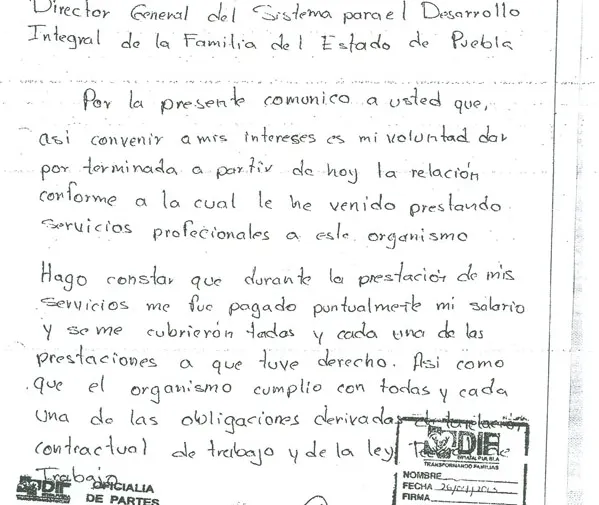 Director General del Sistema para el Desarrollo
Integral de la Familia del Estado de Puebla
Por la presente comunico a usted que,
asi convenir a mis intereses es mi voluntad dar
por terminada a partir de hoy la relación
conforme a la cual le he venido prestando
servicios profecionales a este organismo
Hago constar que durante la prestación de mis
servicios me fue pagado puntualmente mi salario
y se me cubrierón todas y cada una de las
prestaciones a que tuve derecho. Asi como
que el organismo cumplio con todas y cada
una de las obligaciones derivadas de la relación
contractual de trabajo y de la ley de
Trabajo
DIF
ESTATAL PUEBLA
TRANSFORMANDO FAMILIAS
NOMBRE
FECHA
FIRMA
DIF OFICIALIA
DE PARTES